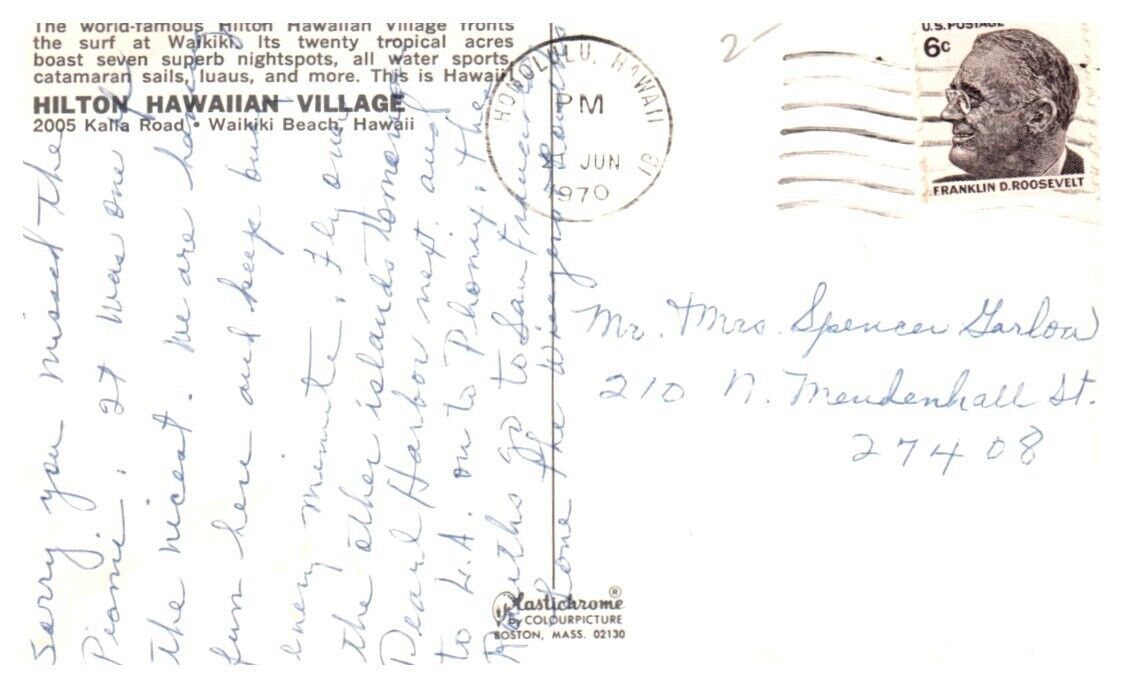 The world-famous Hilton Hawaiian Village fronts
the surf at Waikiki. Its twenty tropical acres
boast seven superb nightspots, all water sports,
catamaran sails, luaus, and more. This is Hawaii!
HILTON HAWAIIAN VILLAGE
2005 Kalia Road • Waikiki Beach, Hawaii
HONOLULU, HAWAII
PM
JUN
1970
1B
2
U.S. POSTAGE
6c
FRANKLIN D. ROOSEVELT
Mr. & Mrs. Spencer Garlow
210 N. Mendenhall St.
27408
Sorry you missed the
Picnic. It was one of
the nicest. We are having
fun here and keep busy
every minute. Fly over
the other islands tomorrow
Pearl Harbor next. and
to L.A. on to Phoenix. The
go to San Francisco
Love The
Plastichrome®
by COLOURPICTURE
BOSTON, MASS. 02130